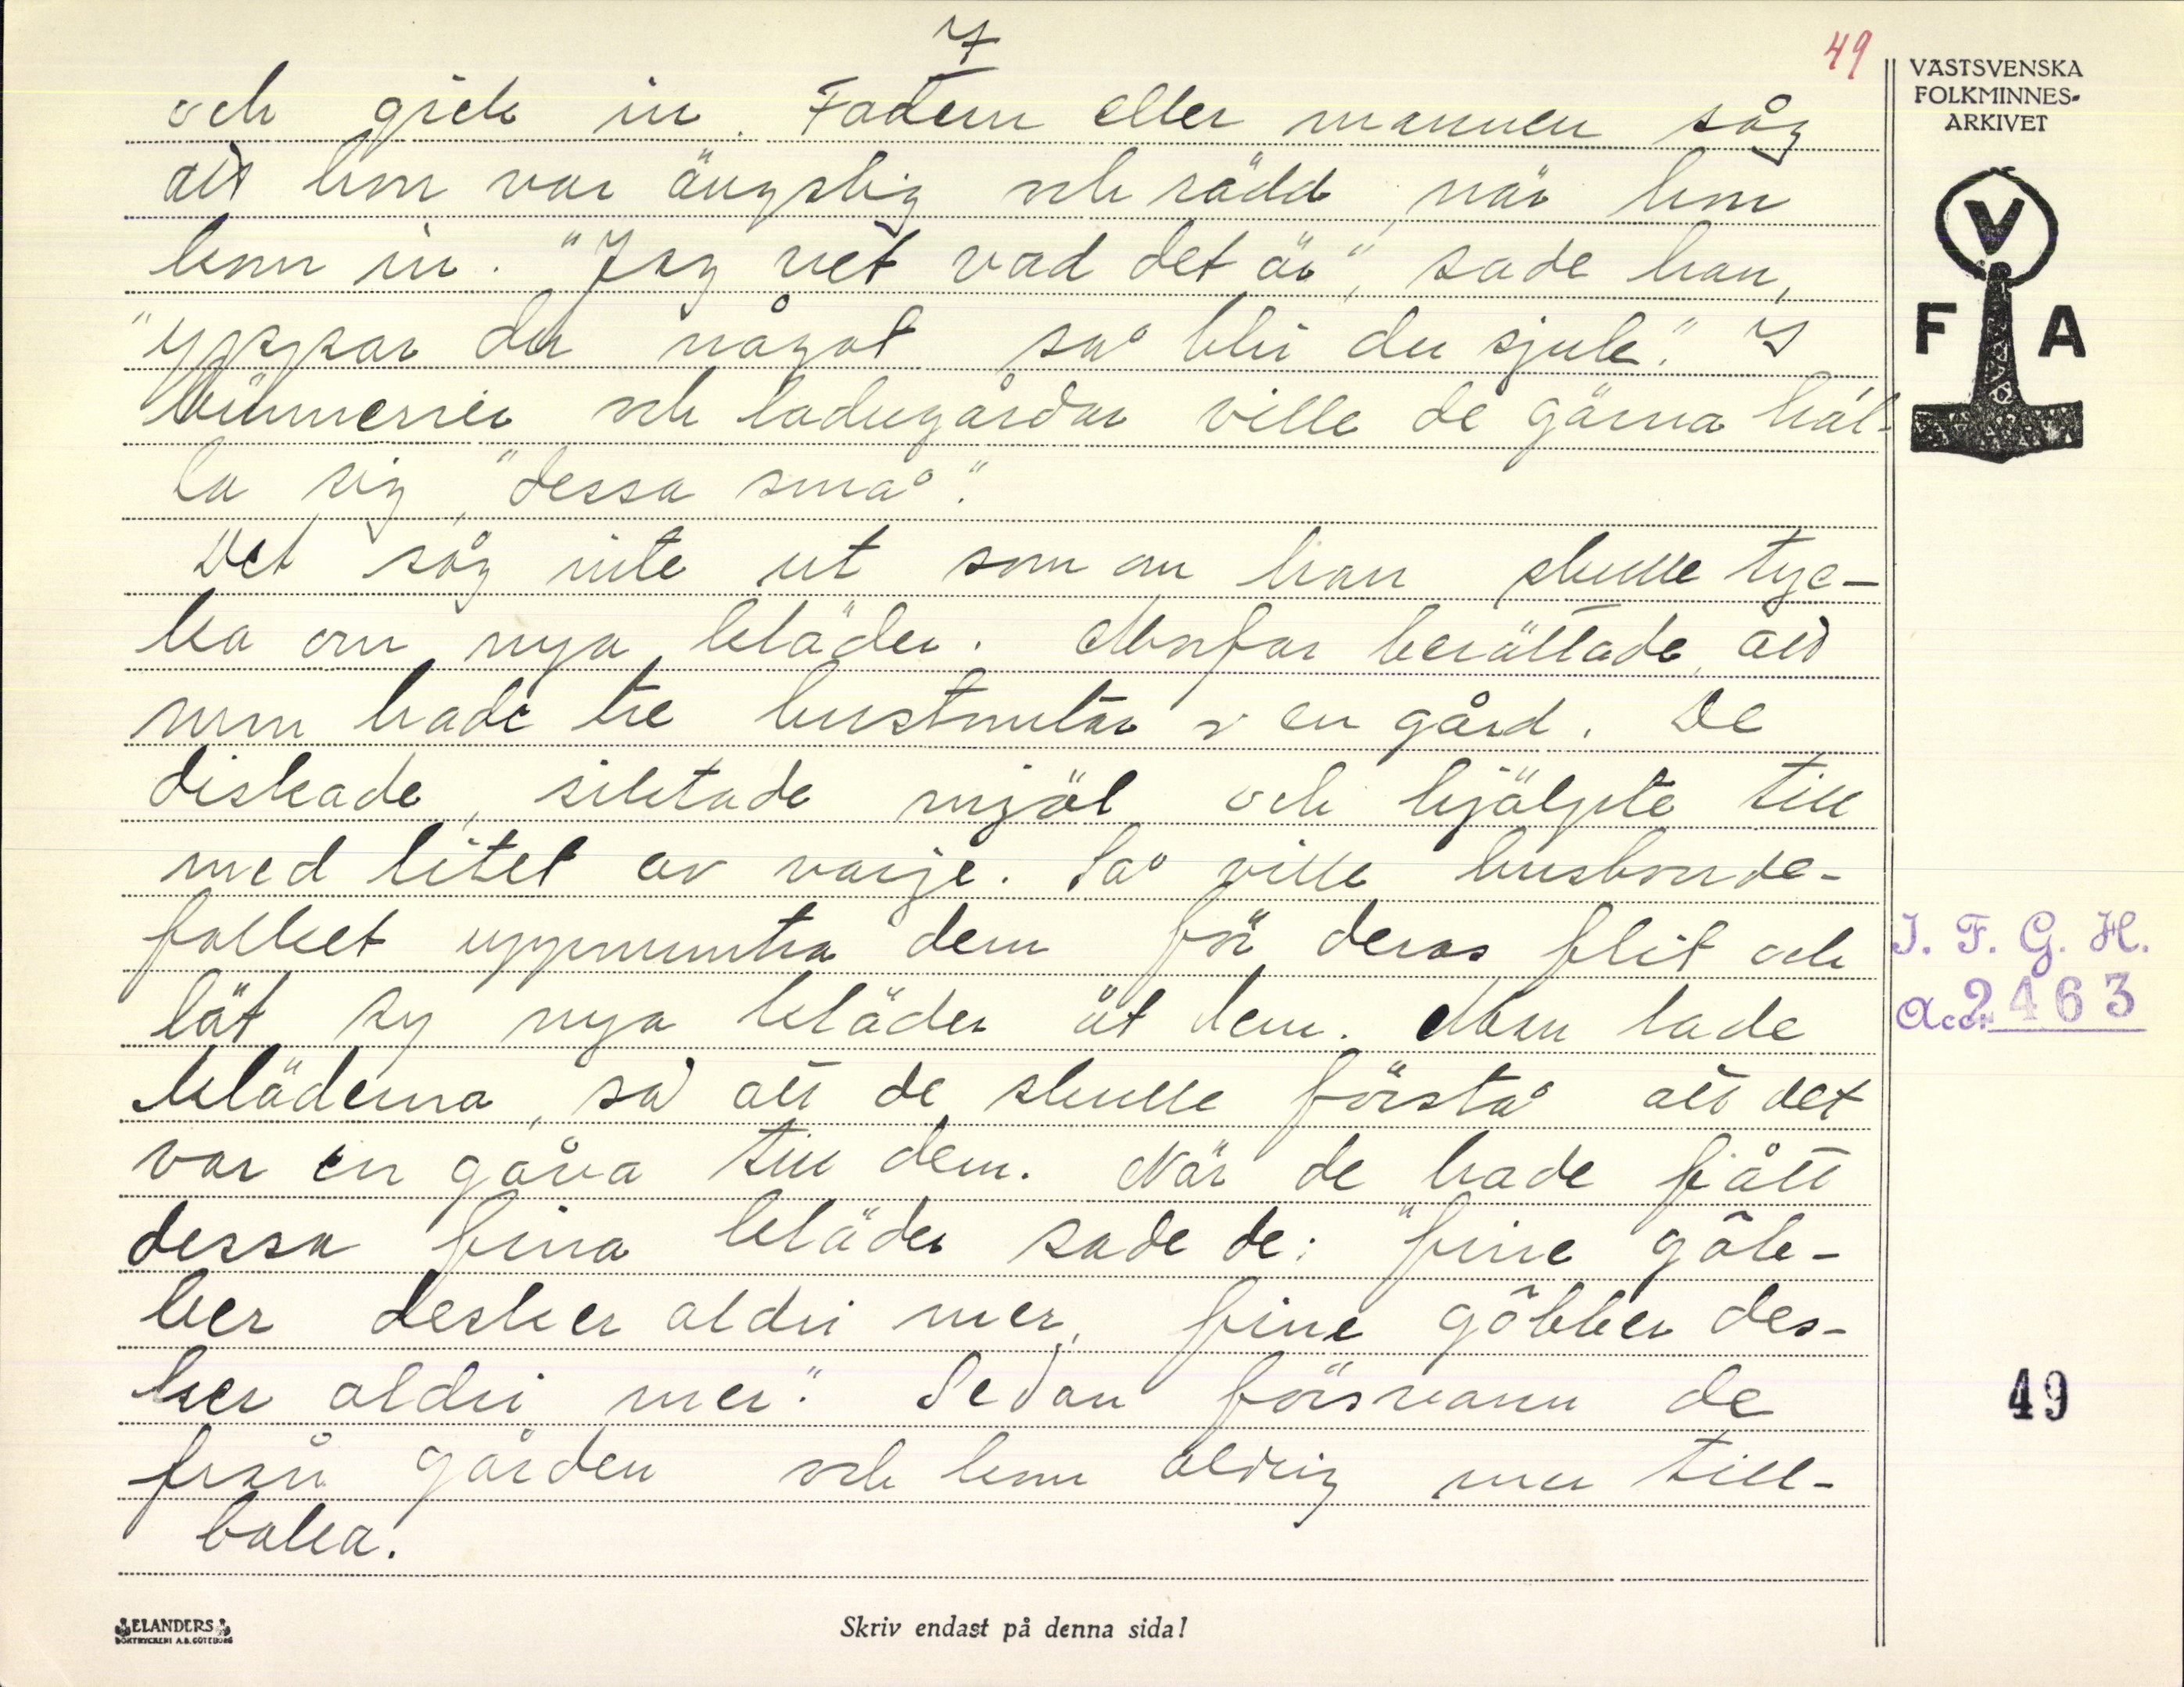 7
49
och gick in. Fadern eller mannen såg
att hon var ängslig och rädd, när hon
kom in. "Jag vet vad det är", sade han,
"yppar du något så blir du sjuk." I
brännerier och ladugårdar ville de gärna hål-
la sig, "dessa små".
Det såg inte ut som om han skulle tyc-
ka om nya kläder. Morfar berättade, att
mom hade tre hustomtar i en gård. De
diskade, siktade mjöl och hjälpte till
med litet av varje. Så ville husbonde-
folket uppmuntra dem för deras flit och
lät sy nya kläder åt dem. Man lade
kläderna, så att de skulle förstå att det
var en gåva till dem. När de hade fått
dessa fina kläder sade de: "fine göb-
ber desker aldri mer, fine göbber des-
ker aldri mer." Sedan försvann de
från gården och kom aldrig mer till-
baka.
VÄSTSVENSKA
FOLKMINNES-
ARKIVET
V
F A
I. F. G. H.
Acc. 2463
49
ELANDERS
BOKTRYCKERI A.B. GÖTEBORG
Skriv endast på denna sida!